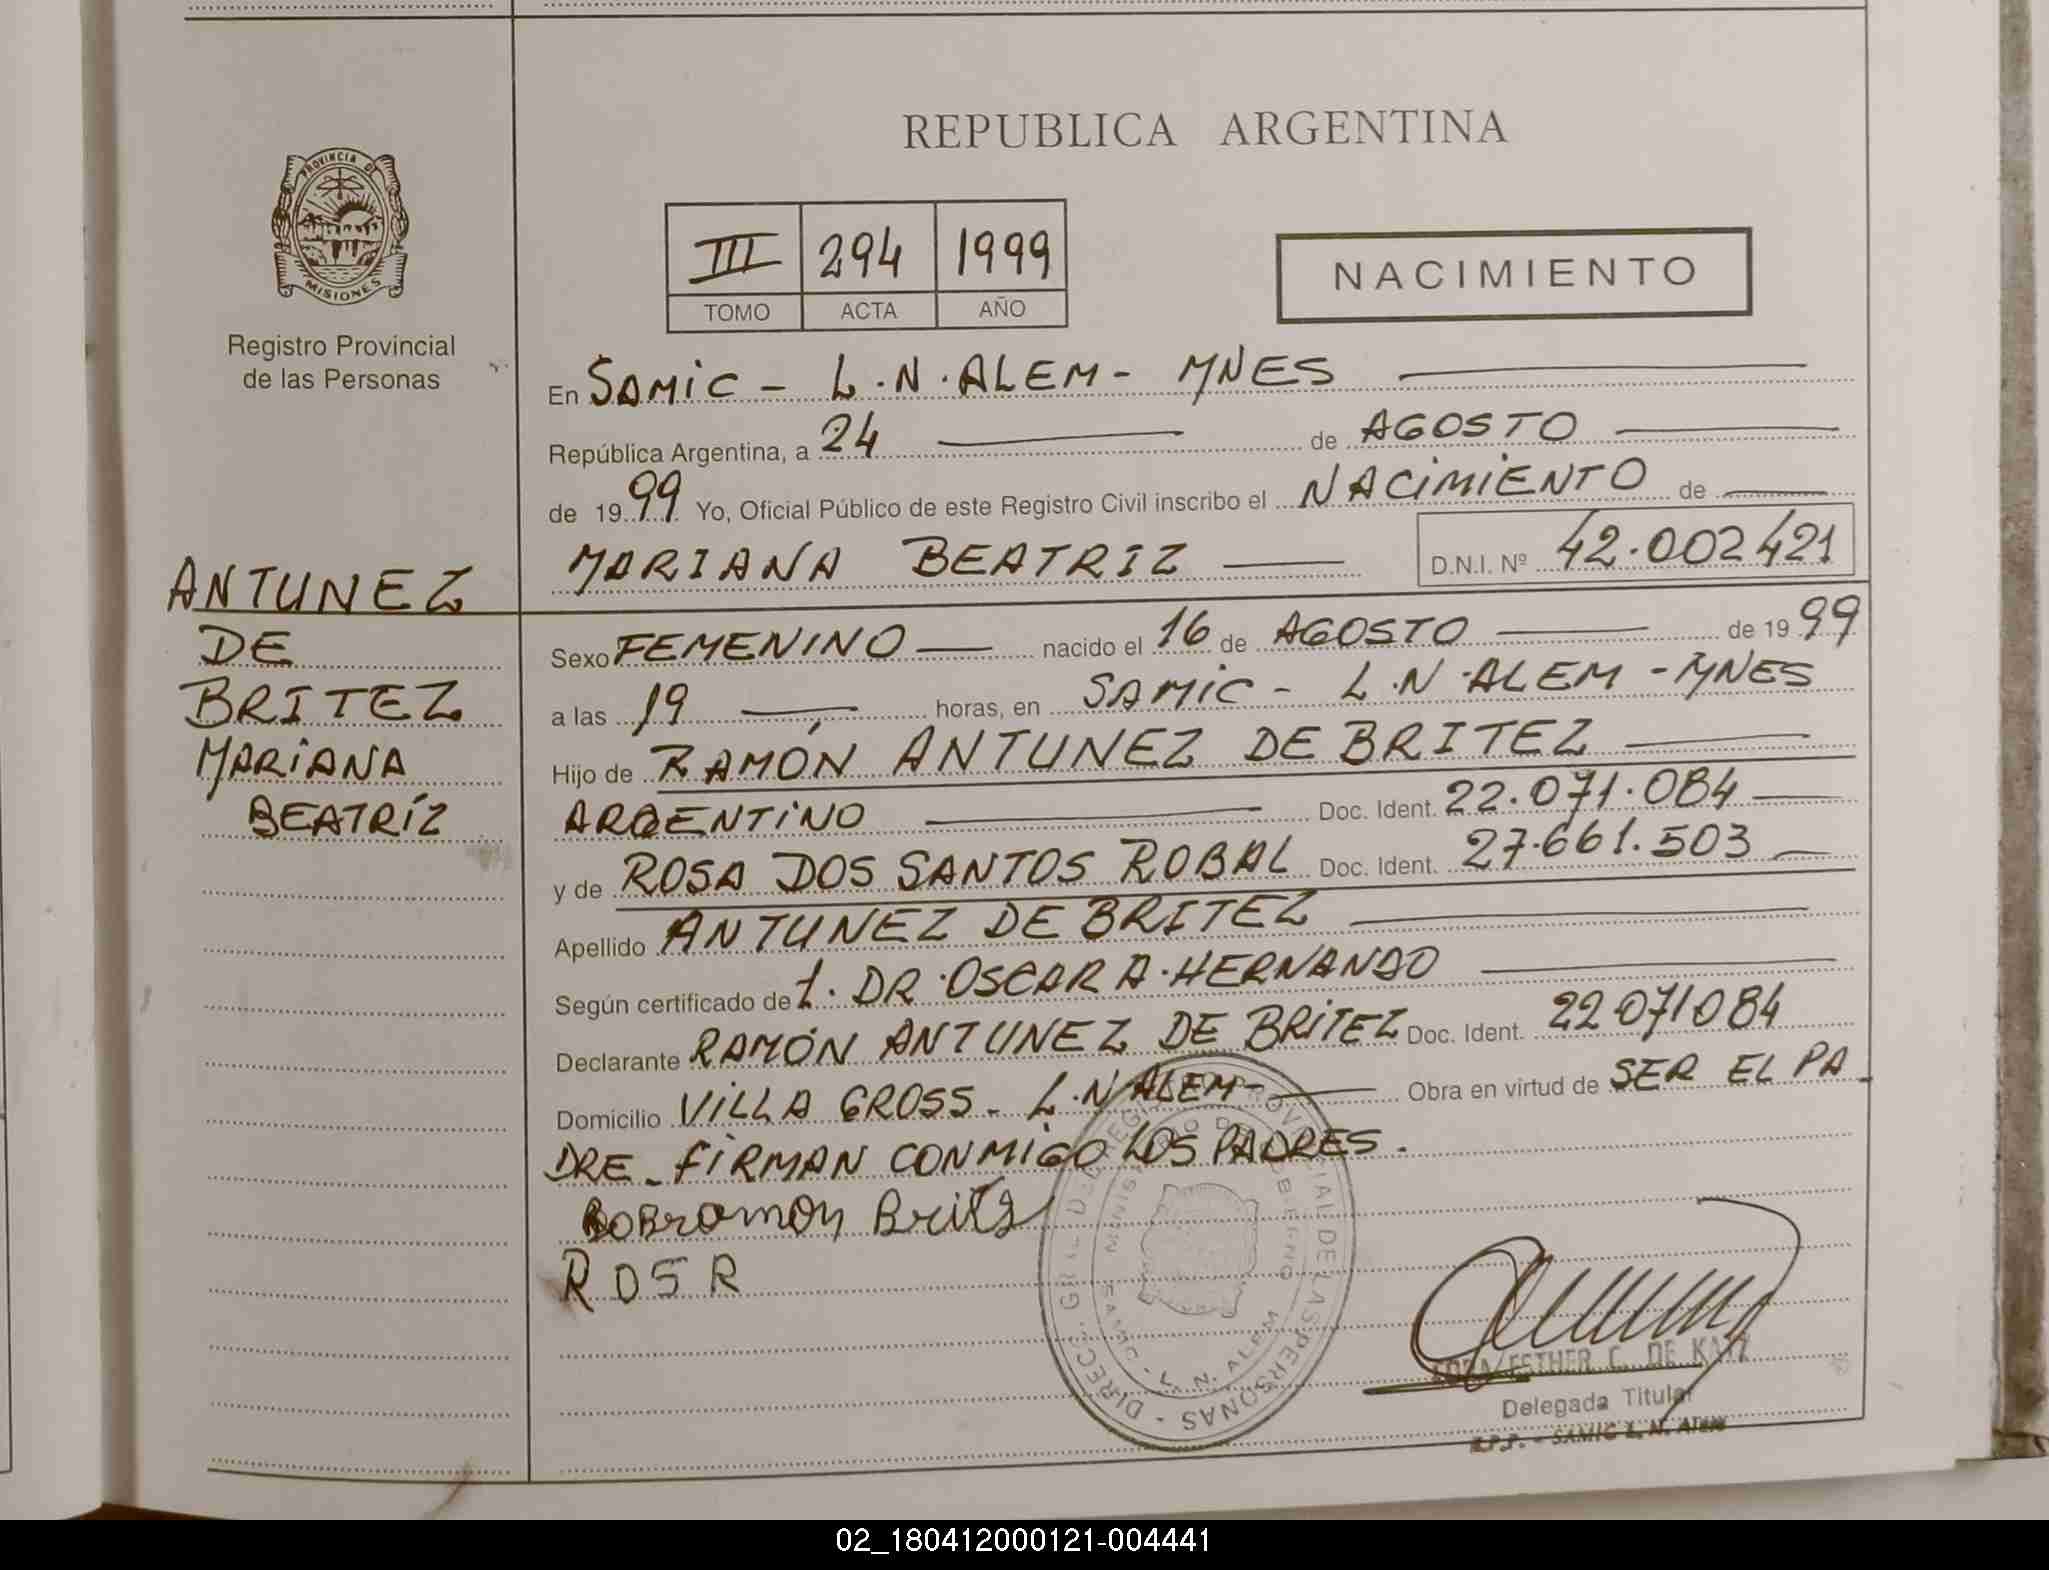 REPUBLICA ARGENTINA
PROVINCIA DE
MISIONES
Registro Provincial
de las Personas
III 294 1999
TOMO ACTA AÑO
NACIMIENTO
En SAMIC - L.N.ALEM - MNES
República Argentina, a 24 de AGOSTO
de 1999 Yo, Oficial Público de este Registro Civil inscribo el NACIMIENTO de
MARIANA BEATRIZ D.N.I. Nº 42.002421
ANTUNEZ
DE
BRITEZ
MARIANA
BEATRÍZ
Sexo FEMENINO nacido el 16 de AGOSTO de 1999
a las 19 horas, en SAMIC - L.N.ALEM - MNES
Hijo de RAMÓN ANTUNEZ DE BRITEZ
ARGENTINO Doc. Ident. 22.071.084
y de ROSA DOS SANTOS ROBAL Doc. Ident. 27.661.503
Apellido ANTUNEZ DE BRITEZ
Según certificado de 1. DR. OSCAR A. HERNANDO
Declarante RAMÓN ANTUNEZ DE BRITEZ Doc. Ident. 22071084
Domicilio VILLA GROSS - L.N ALEM - Obra en virtud de SER EL PA-
DRE - FIRMAN CONMIGO LOS PADRES.
ROSR
DIREC. GRAL. DEL REG. PROVINCIAL DE LAS PERSONAS
SAMIC - L. N. ALEM
ESTHER C. DE KATZ
Delegada Titular
R.P.P. - SAMIC L. N. Alem
02_180412000121-004441